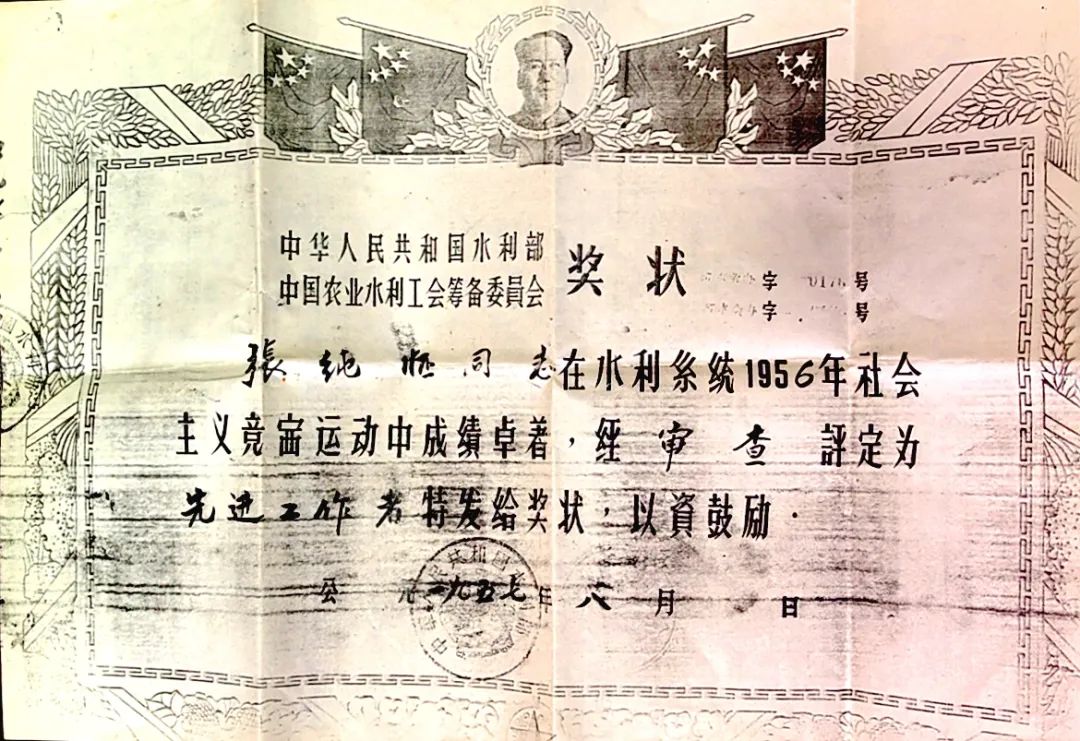 中华人民共和国水利部
中国农业水利工会筹备委員会
奖状
字 017 号
字 号
張純 同志在水利系统1956年社会
主义竞宙运动中成績卓著，經審查評定为
先进工作者特发给奖状，以資鼓励．
公元一九五七年八月 日